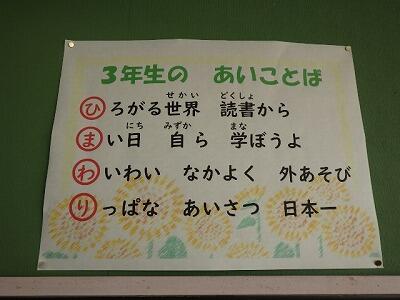 3年生の あいことば
ひろがる世界 読書から
せかい どくしょ
まい日 自ら 学ぼうよ
にち みずか まな
わいわい なかよく 外あそび
りっぱな あいさつ 日本一